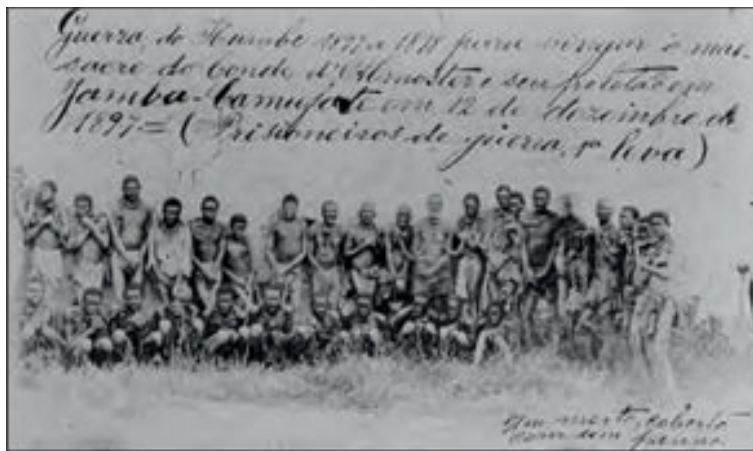 Guerra do Humbe 1897 a 1898 para vingar o mas-
sacre do Conde d'Almoster e seu pelotão em
Jamba-Camufate em 12 de dezembro de
1897= (Prisioneiros de guerra, 1ª leva)
Um morto, coberto
com um panno.